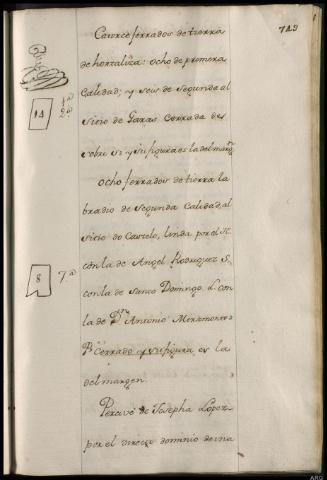 743
Catorce ferrados de tierra
de hortaliza: ocho de primera
Calidad; y seis de segunda al
sitio de Garas Cerrada de
sobre si y su figura es la del marg.n
14
1.a
2.a
Ocho ferrados de tierra la
bradio de segunda Calidad, al
sitio do Castelo, linda por el N.
con la de Angel Rodriguez S.
con la de Santo Domingo L. con
la de D.n Antonio Miramontes
P.e Cerrado y su figura es la
del margen
8
7.a
Percive de Josepha Lopez
por el directo dominio de una
ARG